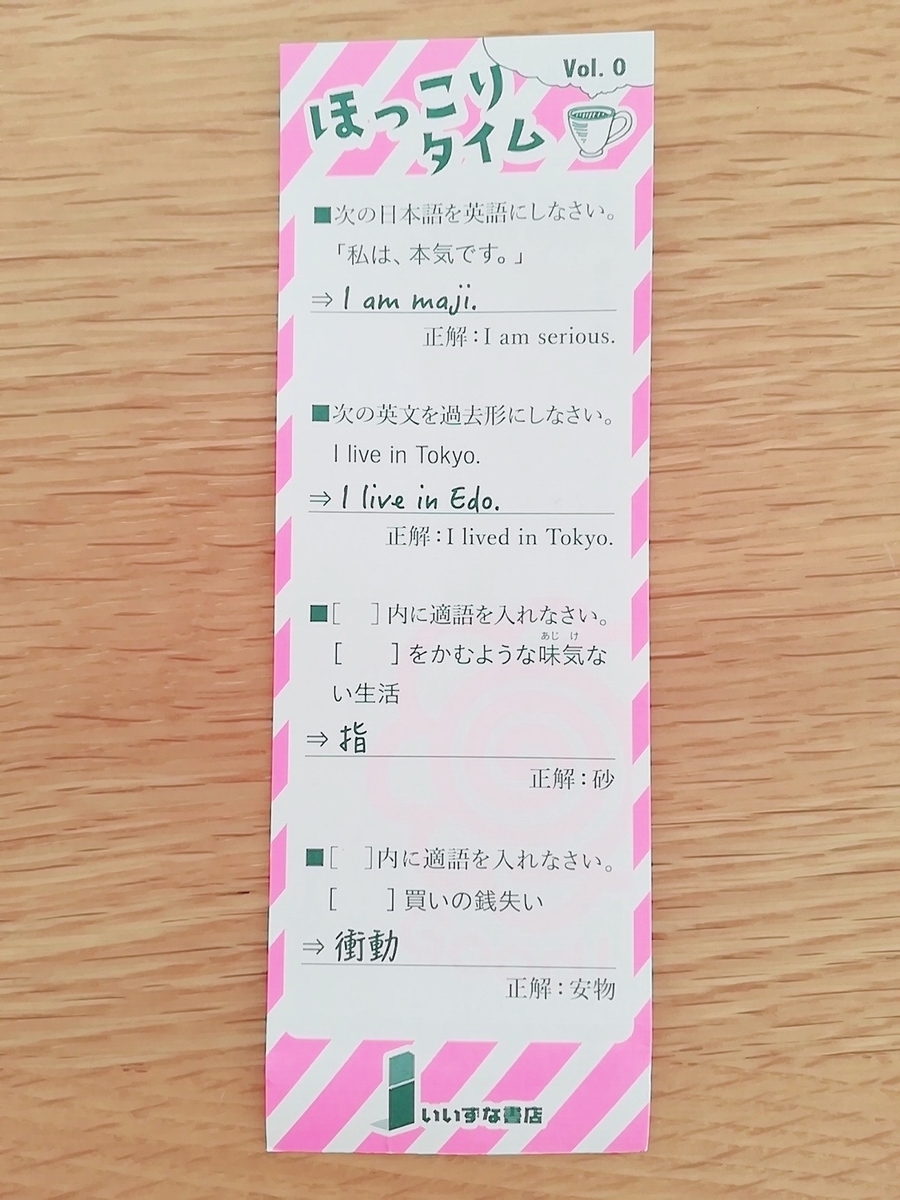 Vol. 0
ほっこり
タイム
■次の日本語を英語にしなさい。
「私は、本気です。」
⇒ I am maji.
正解：I am serious.
■次の英文を過去形にしなさい。
I live in Tokyo.
⇒ I live in Edo.
正解：I lived in Tokyo.
■[　]内に適語を入れなさい。
あじ け
[　　]をかむような味気な
い生活
⇒ 指
正解：砂
■[　]内に適語を入れなさい。
[　　]買いの銭失い
⇒ 衝動
正解：安物
いいずな書店